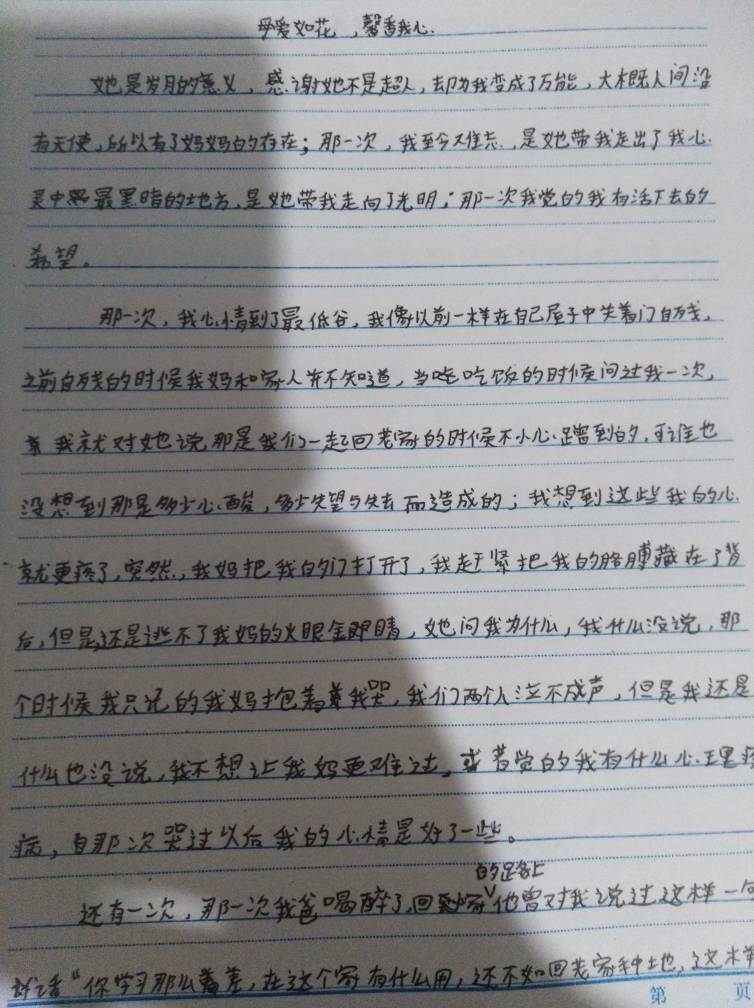 母爱如花,馨香我心.
她是岁月的意义,感谢她不是超人,却为我变成了万能,大概人间没
有天使,所以有了妈妈的存在;那一次,我至今难忘.,是她带我走出了我心
灵中最黑暗的地方,是她带我走向了光明;那一次我觉的我有活下去的
希望。
那一次,我心情到了最低谷,我像以前一样在自己屋子中关着门自残,
之前自残的时候我妈和家人并不知道,当吃饭的时候问过我一次,
我就对她说那是我们一起回老家的时候不小心蹭到的,可谁也
没想到那是多少心酸,多少失望与失去而造成的;我想到这些我的心
就更疼了,突然,我妈把我的门打开了,我赶紧把我的胳膊藏在了背
后,但是还是逃不了我妈的火眼金睛,她问我为什么,我什么没说,那
个时候我只记的我妈抱着我哭,我们两个人泣不成声,但是我还是
什么也没说,我不想让我妈更难过,或者觉的我有什么心理疾
病,自那次哭过以后我的心情是好了一些。
还有一次,那一次我爸喝醉了,回家的路上他曾对我说过这样一句
话“你学习那么差,在这个家有什么用,还不如回老家种地,这样
第 页